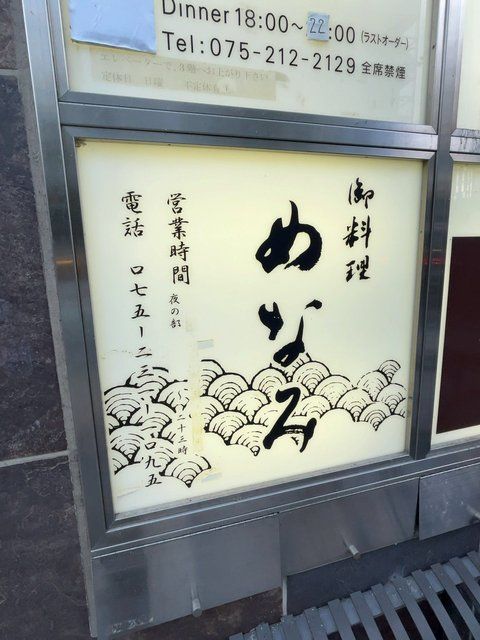 Dinner 18:00～22:00 (ラストオーダー)
Tel:075-212-2129 全席禁煙
エレベーターで、3階へお上がり下さい
定休日 日曜
御料理
めなみ
営業時間 夜の部
十三時
電話 〇七五ー二三一ー〇九五